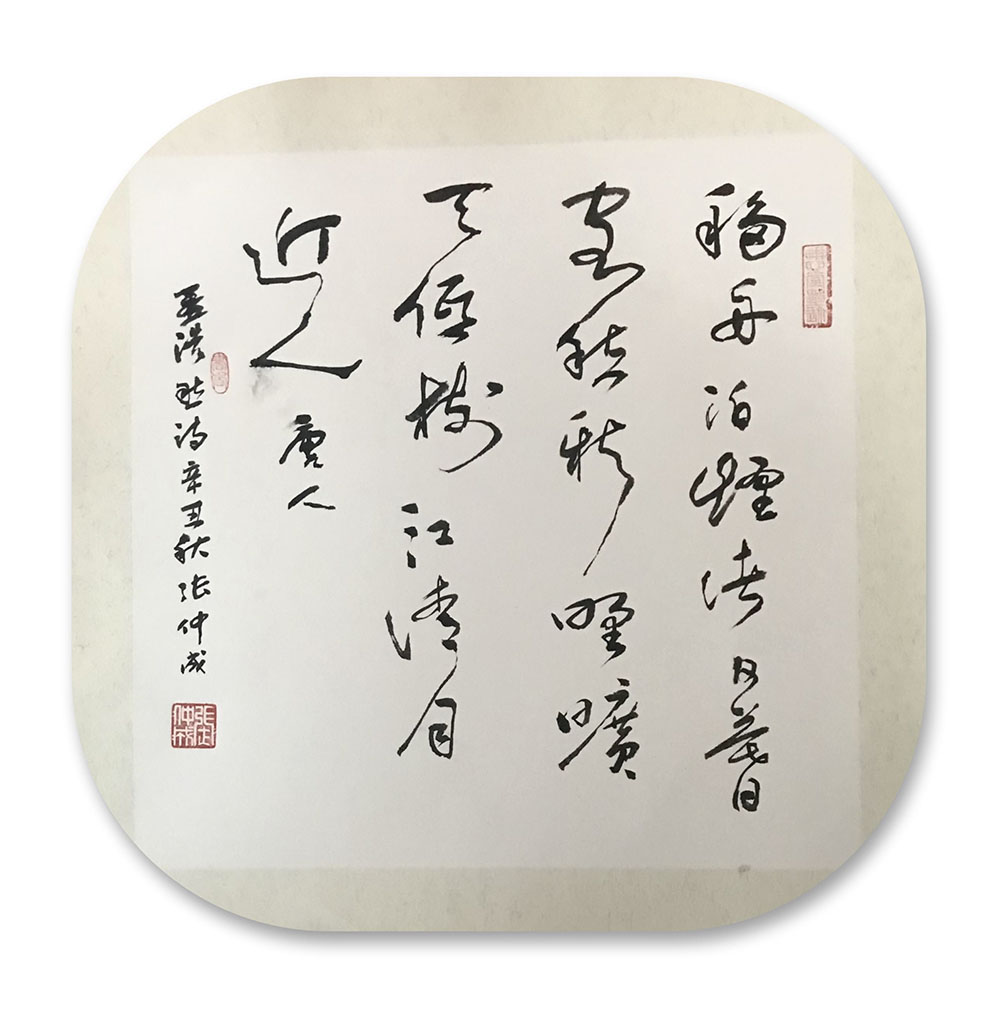 移舟泊煙渚日暮
客愁新野曠
天低樹江清月
近人 唐人
孟浩然詩辛丑秋張仲成